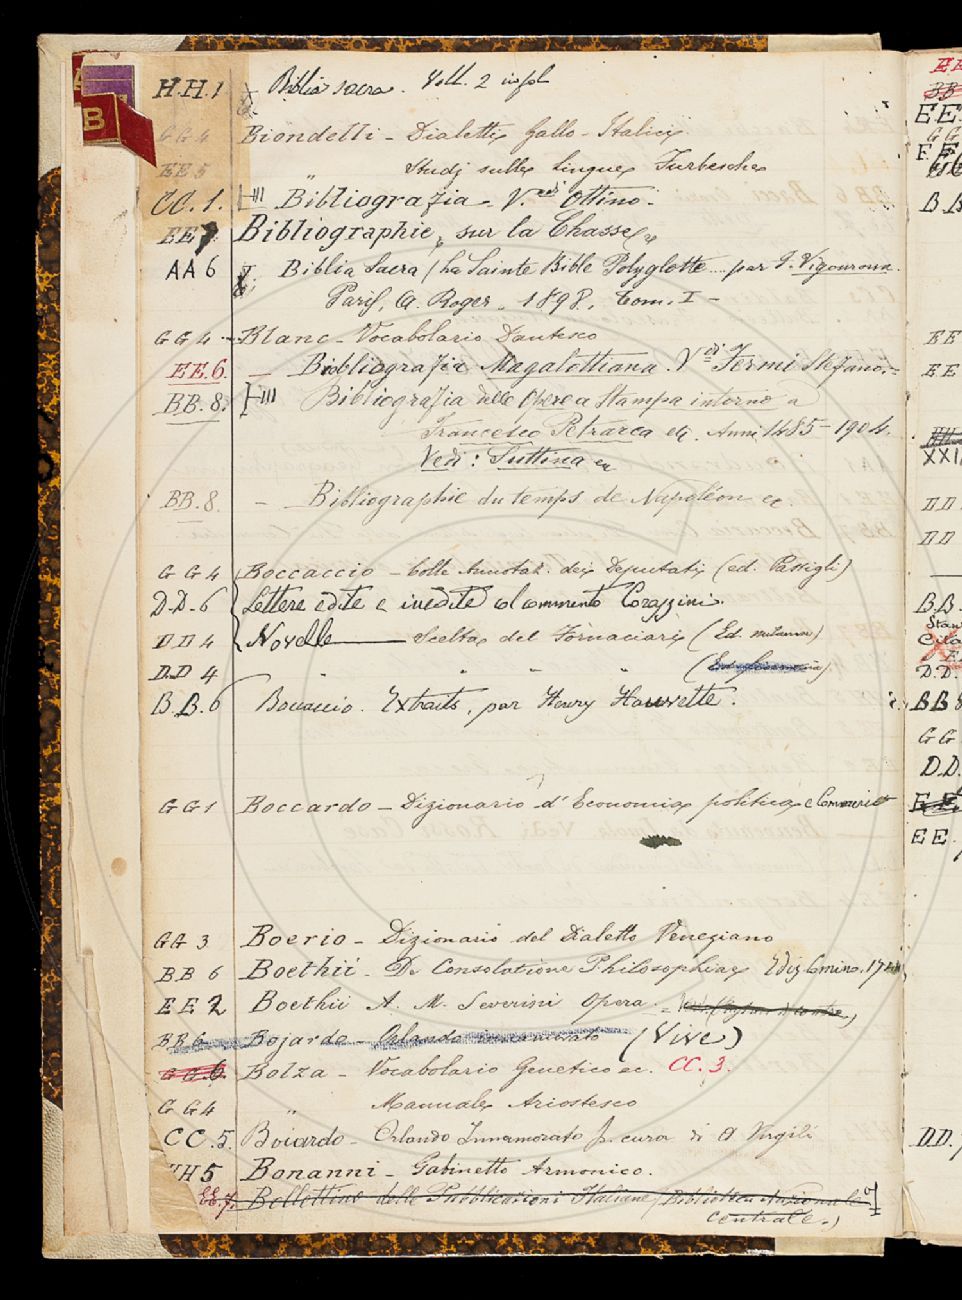 H.H.1 Biblia sacra. Voll. 2 in fol
GG4 Biondelli - Dialetti Gallo-Italici
EE5 " Studj sulle lingue Furbesche
CC.1. Bibliografia - V. Ottino.
EE7 Bibliographie sur la Chasse
AA6 Biblia Sacra / La Sainte Bible Polyglotte ... par F. Vigouroux.
Paris, A. Roger, 1898. Tom. I -
GG4 Blanc - Vocabolario Dantesco
EE.6. - Bibliografia Magalottiana. V. Fermi Stefano. -
BB.8. Bibliografia delle Opere a Stampa intorno a
Francesco Petrarca Anni 1485-1904.
Vedi: Suttina
BB.8. - Bibliographie du temps de Napoléon ec.
GG4 Boccaccio - Colle Annotaz. dei Deputati (ed. Passigli)
D.D.6 Lettere edite e inedite col commento Corazzini.
DD4 Novelle Scelta del Fornaciari (Ed. milanese)
DD4 " " "
B.B.6 Boccaccio. Extraits, par Henry Hauvette.
GG1 Boccardo - Dizionario d'Economia politica e Commercio
GG3 Boerio - Dizionario del Dialetto Veneziano
BB6 Boethii - De Consolatione Philosophiae Ediz Comino. 17
EE2 Boethii A. M. Severini Opera.
BB6 Bojardo - Orlando innamorato (Vive)
GG.6. Bolza - Vocabolario Genetico ec. CC.3.
GG4 " Manuale Ariostesco
CC.5. Boiardo - Orlando Innamorato p. cura di A Virgili
HH5 Bonanni - Gabinetto Armonico.
EE.7. Bollettino delle Pubblicazioni Italiane (Biblioteca Nazionale
centrale.)
B